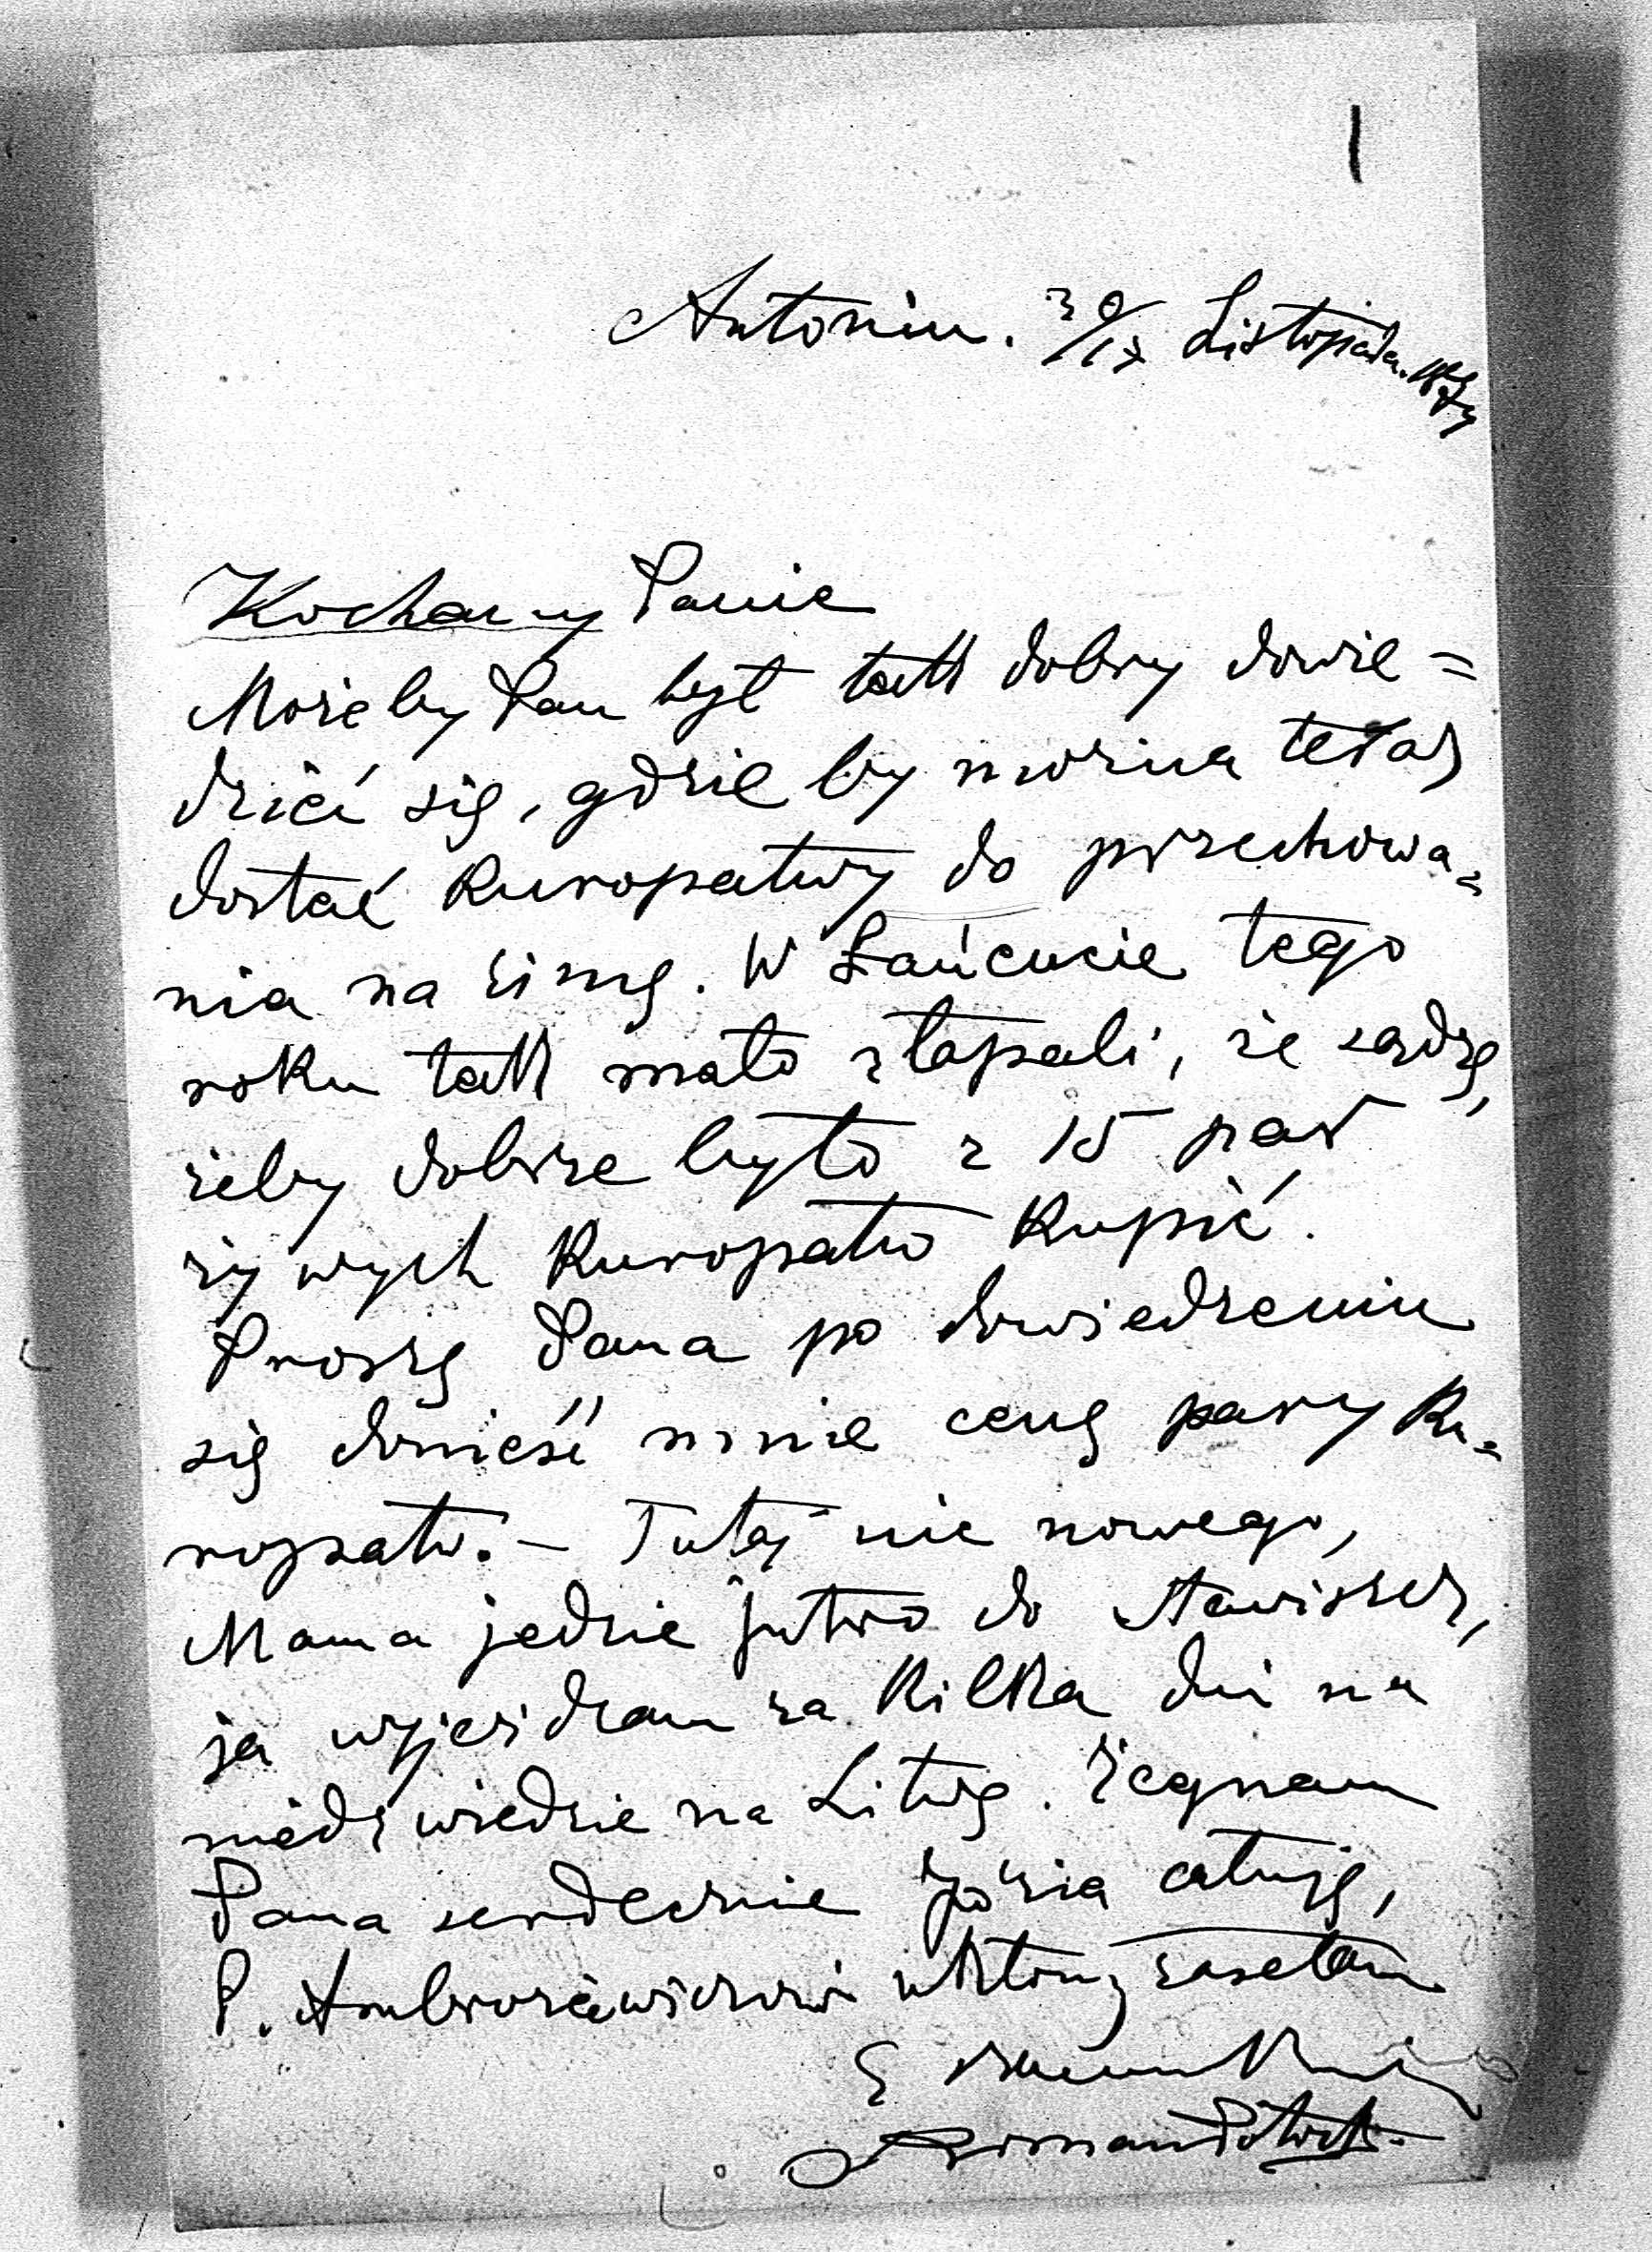 1
Antonin. 30/18 Listopada.
Kochany Panie
Może by Pan był tak dobry dowie=
dzieć się, gdzie by można teraz
dostać kuropatwy do przechowa=
nia na zimę. W Łańcucie tego
roku tak mało złapali, że sądzę,
żeby dobrze było z 15 par
żywych kuropatw kupić.
Proszę Pana po dowiedzeniu
się donieść mnie cenę pary ku=
ropatw. – Tutaj nic nowego,
Mama jedzie jutro do Stawiszcz,
ja wyjeżdżam za kilka dni na
niedźwiedzie na Litwę. Żegnam
Pana serdecznie Józia całuję,
P. Ambroziewiczowi ukłony zasełam
Roman Potocki.